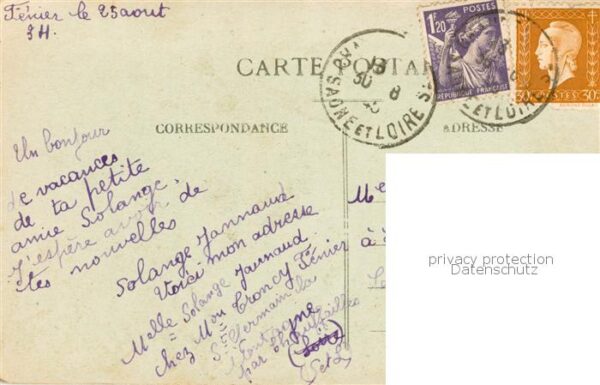 Fénier le 25 aout
3H.
CARTE POSTA
CORRESPONDANCE
ADRESSE
1F20 POSTES
REPUBLIQUE FRANÇAISE
30F POSTES 30F
30 8 45
SAONE ET LOIRE
ET LOIRE
Un bonjour
de vacances
de ta petite
amie Solange.
J'espère avoir de
tes nouvelles
Solange Jannaud
Voici mon adresse
Melle Solange Jannaud
chez Mou Croncy Fénier
St Germain la
Montagne
par
(Loire)
(S et L)
Me
à
privacy protection
Datenschutz